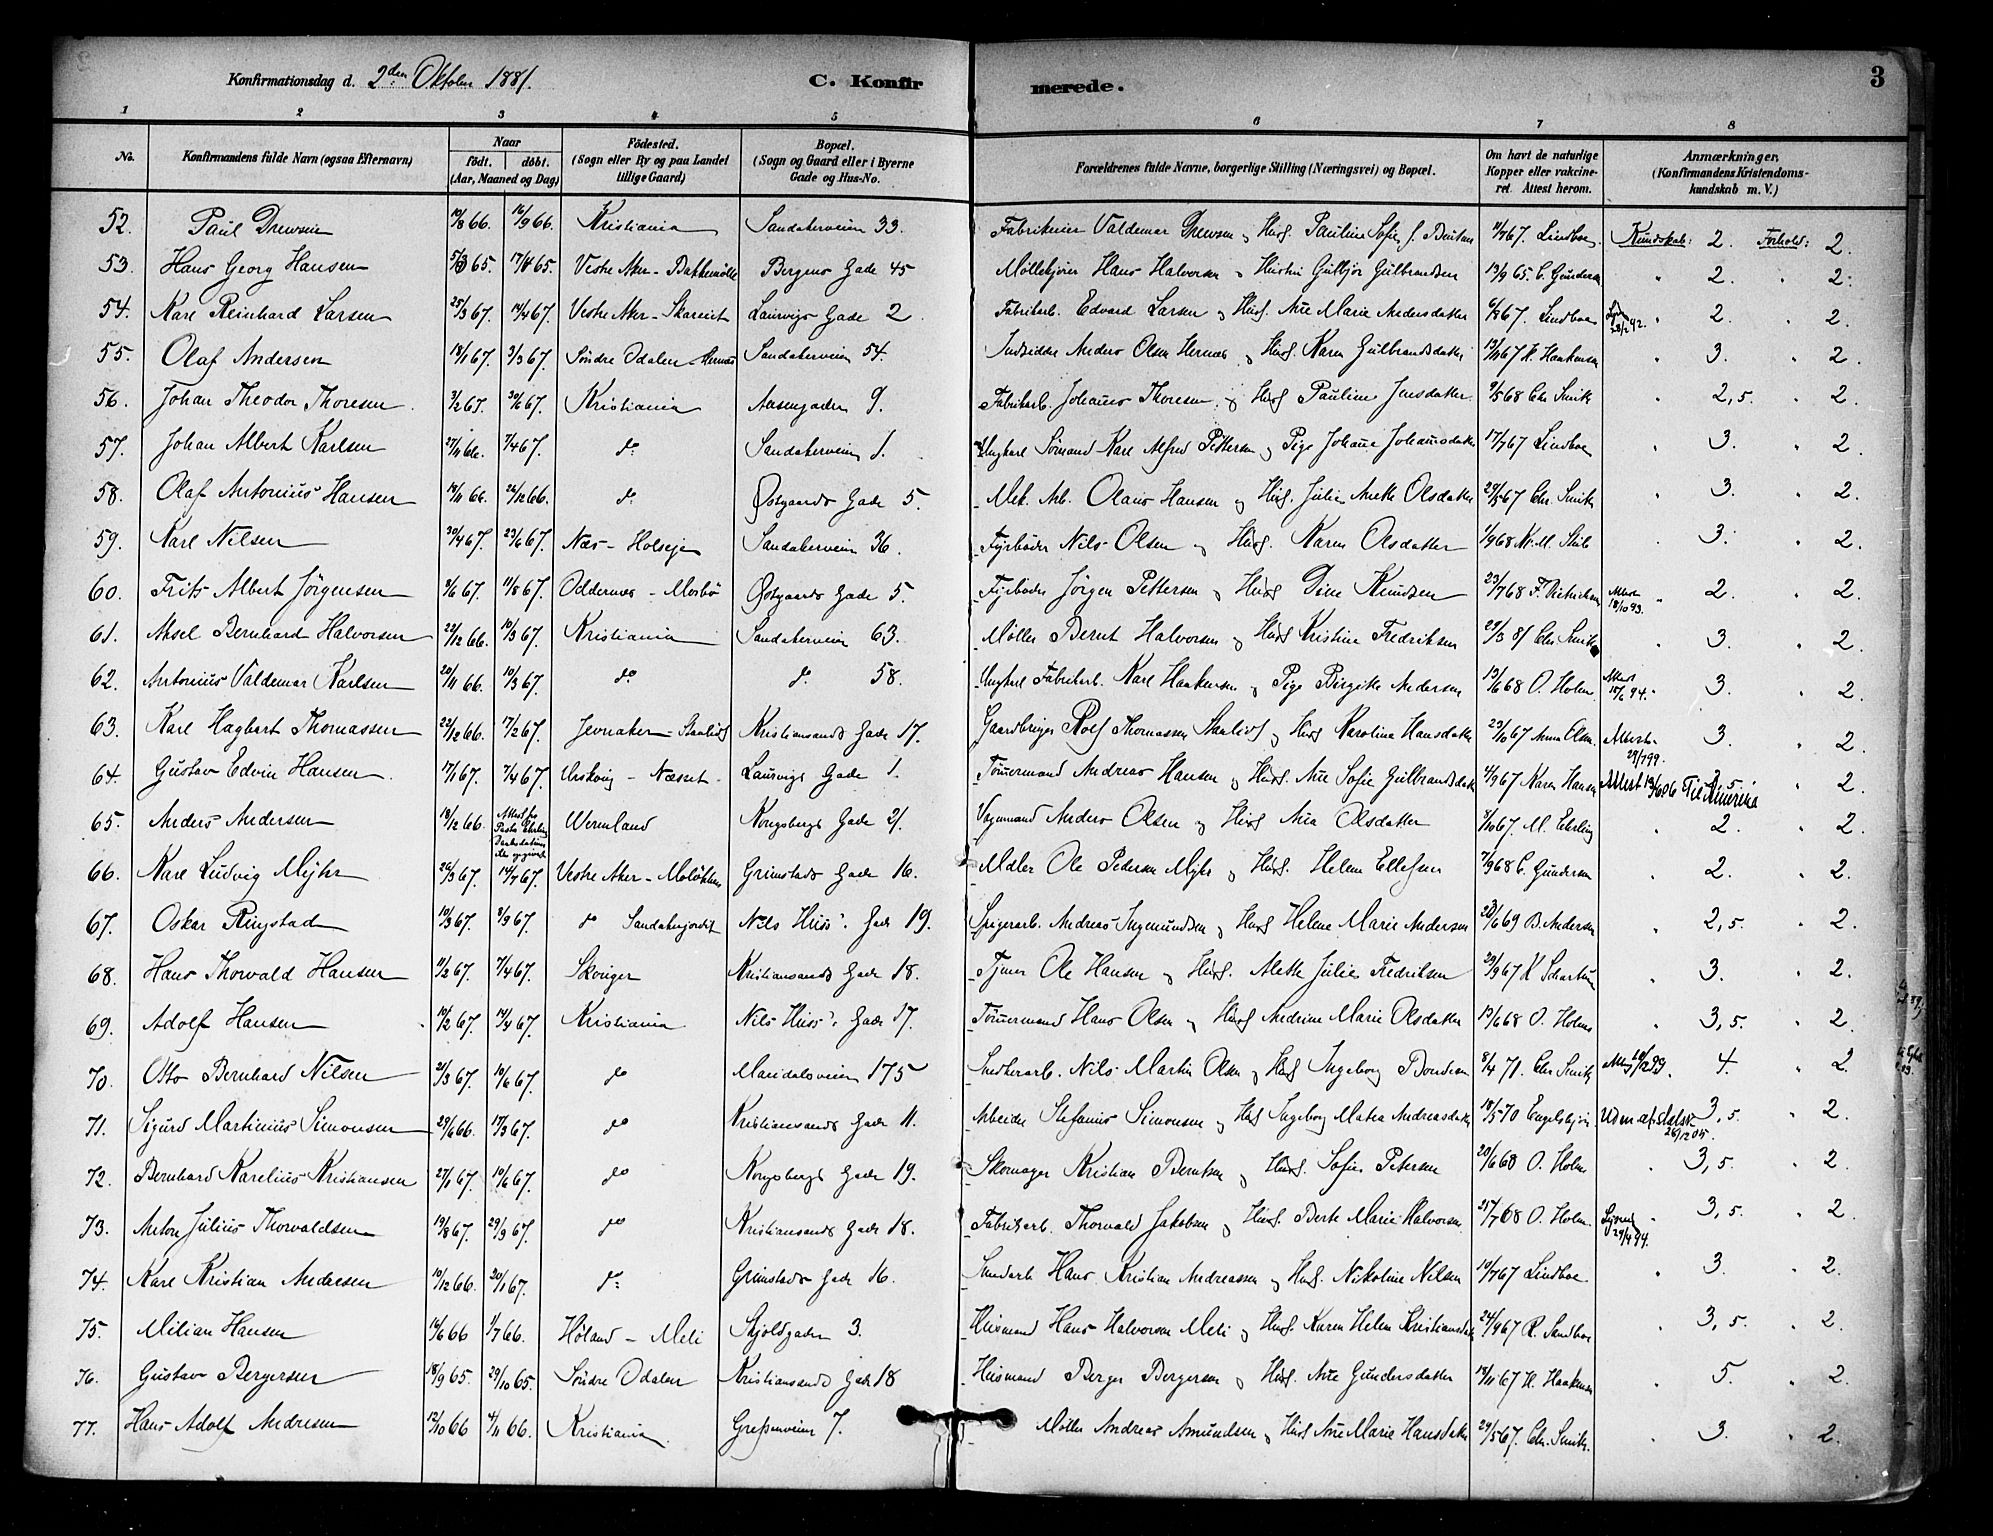 Konfirmationsdag d. 2den Oktober 1881. C. Konfirmerede. 3
1 2 3 4 5 6 7 8
No. Konfirmandens fulde Navn (ogsaa Efternavn) Naar födt. döbt. (Aar, Maaned og Dag) Födested. (Sogn eller By og paa Landet tillige Gaard) Bopæl. (Sogn og Gaard eller i Byerne Gade og Hus-No. Forældrenes fulde Navne, borgerlige Stilling (Næringsvei) og Bopæl. Om havt de naturlige Kopper eller vakcineret. Attest herom. Anmærkninger. (Konfirmandens Kristendomskundskab m. V.)
52. Paul Drewsen 19/8 66. 16/9 66. Kristiania Sandakerveien 33. Fabrikeier Valdemar Drewsen og Hust. Pauline Sofie 67. Lindboe. Kundskab: 2. Forhold: 2.
53. Hans Georg Hansen 65. 65. Vestre Aker - Bakkemölle Bergens Gade 45 Möllekjörer Hans Halvorsen Gulbrandsen 13/9 65. C. Gundersen " 2. " 2.
54. Karl Reinhard Larsen 25/3 67. 14/4 67. Vestre Aker - Laurvigs Gade 2. Fabrikarb. Edvard Larsen og Hust. Ane Marie Andersdatter 67. Lindboe 2. " 2.
55. Olaf Andersen 18/1 67. 3/3 67. Söndre Odalen - Hernæs Sandakerveien 54. Anders Olsen Hernæs og Hust. Karen Gulbrandsdatter 67 H. Haakensen " 3. " 2.
56. Johan Theodor Thoresen. 3/2 67. 30/6 67. Kristiania Aasengaden 9. Fabrikarb. Johannes Thoresen og Hust Pauline Jensdatter 9/5 68 Chr. Smith " 2,5. " 2.
57. Johan Albert Karlsen 27/11 66. 7/4 67. do Sandakerveien 1. Ungkarl Sömand Karl Alfred Pettersen og Pige Johanne Johannsdatter 17/7 67 Lindboe " 3. " 2.
58. Olaf Antonius Hansen 18/11 66. 26/12 66. do Östgaards Gade 5. Mek. Arb. Olaus Hansen og Hust. Julie Anette Olsdatter 29/5 67 Chr. Smith " 3. " 2.
59. Karl Nilsen 30/4 67. 23/6 67. Næs - Sandakerveien 36. Fyrböder Nils Olsen og Hust. Karen Olsdatter 68 " 3. " 2.
60. Frits Albert Jörgensen 67. 11/8 67. Oddernes - Mosbö Östgaards Gade 5. Fyrböder Jörgen Pettersen og Hust Dine Knudsen 23/7 68 F. Didrichsen Attest 18/10 93. " 2. " 2.
61. Aksel Bernhard Halvorsen 22/12 66. 10/3 67. Kristiania Sandakerveien 63. Möller Bernt Halvorsen og Hust Kristine Fredriksen 29/3 81 Chr. Smith " 3. " 2.
62. Antonius Valdemar Karlsen 20/11 66. 10/3 67. do do 58. Ungkarl Fabrikarb. Karl Haakensen og Pige Birgitte Andersen 13/6 68 O. Holm Attest 15/6 94. 3. " 2.
63. Karl Hagbart Thomassen 22/12 66. 17/2 67. Jevnaker - Kristiansands Gade 17. Gaardbruger Rolf Thomassen og Hust Karoline Hansdatter 23/10 67 Anna Olsen. Attest 29/7 99. 3. " 2.
64. Gustav Edvin Hansen. 17/1 67. 7/4 67. Urskoug - Næsset Laurvigs Gade 1. Tömmermand Andreas Hansen og Hust. Ane Sofie Gulbrandsdatter 4/9 67 Karen Hansen Attest Til Amerika 5. " 2.
65. Anders Andersen 18/12 66. Attest fra Wermland Kongsbergs Gade 21. Vognmand Anders Olsen og Hust Ana Olsdatter 67. M. Ehrling " 2. " 2.
66. Karl Ludvig Myhr 26/3 67. 14/7 67. Vestre Aker - Grimstads Gade 16. Maler Ole Pedersen Myhr og Hust. Helene Ellefsen 7/9 68 C. Gundersen " 2. " 2.
67. Oskar Ringstad 10/3 67. 67. do Nils Huss's Gade 19. Spigerarb. Andreas Ingemundsen og Hust Helene Marie Andersen 69 B. Andersen " 2,5. " 2.
68. Hans Thorvald Hansen 11/2 67. 7/4 67. Skoger Kristiansands Gade 18. Tjener Ole Hansen og Hust. Mette Julie Fredriksen 29/9 67 3. " 2.
69. Adolf Hansen 10/2 67. 14/4 67. Kristiania Nils Huss's Gade 17. Tömmermand Hans Olsen og Hust Andrine Marie Olsdatter 13/6 68 O. Holm " 3,5. " 2.
70. Otto Bernhard Nilsen 21/3 67. 10/6 67. do Maridalsveien 175 Snedkerarb. Nils Martin Olsen og Hust Ingeborg Bondesen 8/4 71. Chr. Smith 4. " 2.
71. Sigurd Martinius Simonsen 29/6 66. 17/3 67. do Kristiansands Gade 11. Arbeider Stefanus Simonsen og Hust Ingeborg Mathea Andreasdatter 18/5 70 Ud m. af Statsk. 28/12 05. 3,5. " 2.
72. Bernhard Karelius Kristiansen 27/1 67. 10/6 67. do Kongsbergs Gade 19. Skomager Kristian Berntsen og Hust. Sofie Petersen 20/6 68 O. Holm " 3,5. " 2.
73. Anton Julius Thorvaldsen 13/8 67. 29/9 67. do Kristiansands Gade 18. Fabrikarb. Thorvald Jakobsen og Hust. Berte Marie Halvorsen 21/7 68 O. Holm. 29/4 94. 3,5. " 2.
74. Karl Kristian Andersen 10/12 66. 20/1 67. do Grimstads Gade 16. Hans Kristian Andreassen og Hust. Nikoline Nilsen 10/7 67 Lindboe " 3. " 2.
75. Milian Hansen 16/6 66 1/7 66. Höland - Meli Skjoldgaden 3. Husmand Hans Halvorsen Meli og Hust. Karen Helene Kristiansdatter 24/9 67 R. Sandboe " 3,5. " 2.
76. Gustav Bergersen 18/9 65. 29/10 65. Söndre Odalen Kristiansands Gade 18 Husmand Berger Bergersen og Hust. Ane Gundersdatter 18/11 67 H. Haakensen " 5. " 2.
77. Hans Adolf Andresen 12/10 66 4/11 66. Kristiania Grefsenveien 7. Möller Andreas Amundsen og Hust Ane Marie Hansdatter 29/5 67. Chr. Smith. " 3. " 2.